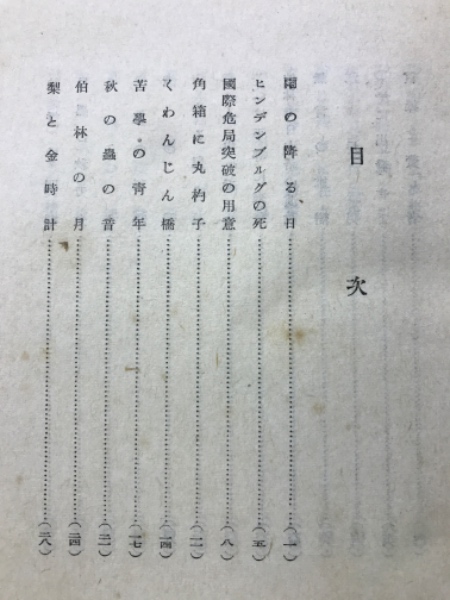 目次
雨の降る日……(一)
ヒンデンブルグの死……(五)
國際危局突破の用意……(八)
角箱に丸杓子……(一一)
くわんじん橋……(一四)
苦學の靑年……(一七)
秋の蟲の音……(二一)
伯林の月……(二四)
梨と金時計……(二八)